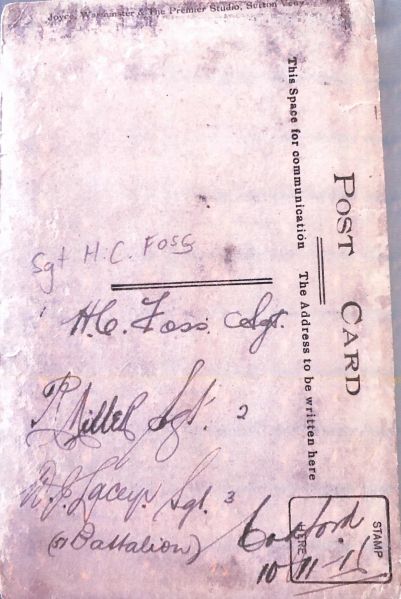 Joyce, Warminster & The Premier Studio, Sutton Veny.
POST CARD
This Space for communication
The Address to be written here
STAMP
HERE
Sgt H.C. Foss
H.C. Foss. Sgt.
Sgt. 2
R.J. Lacey. Sgt. 3
Battalion)
Codford